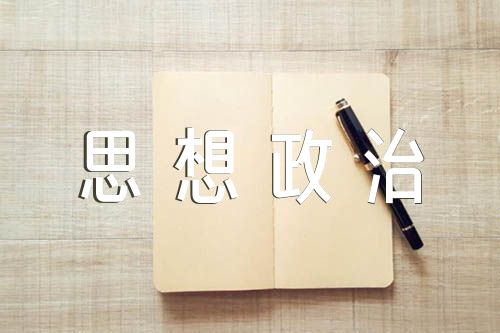 思想政治